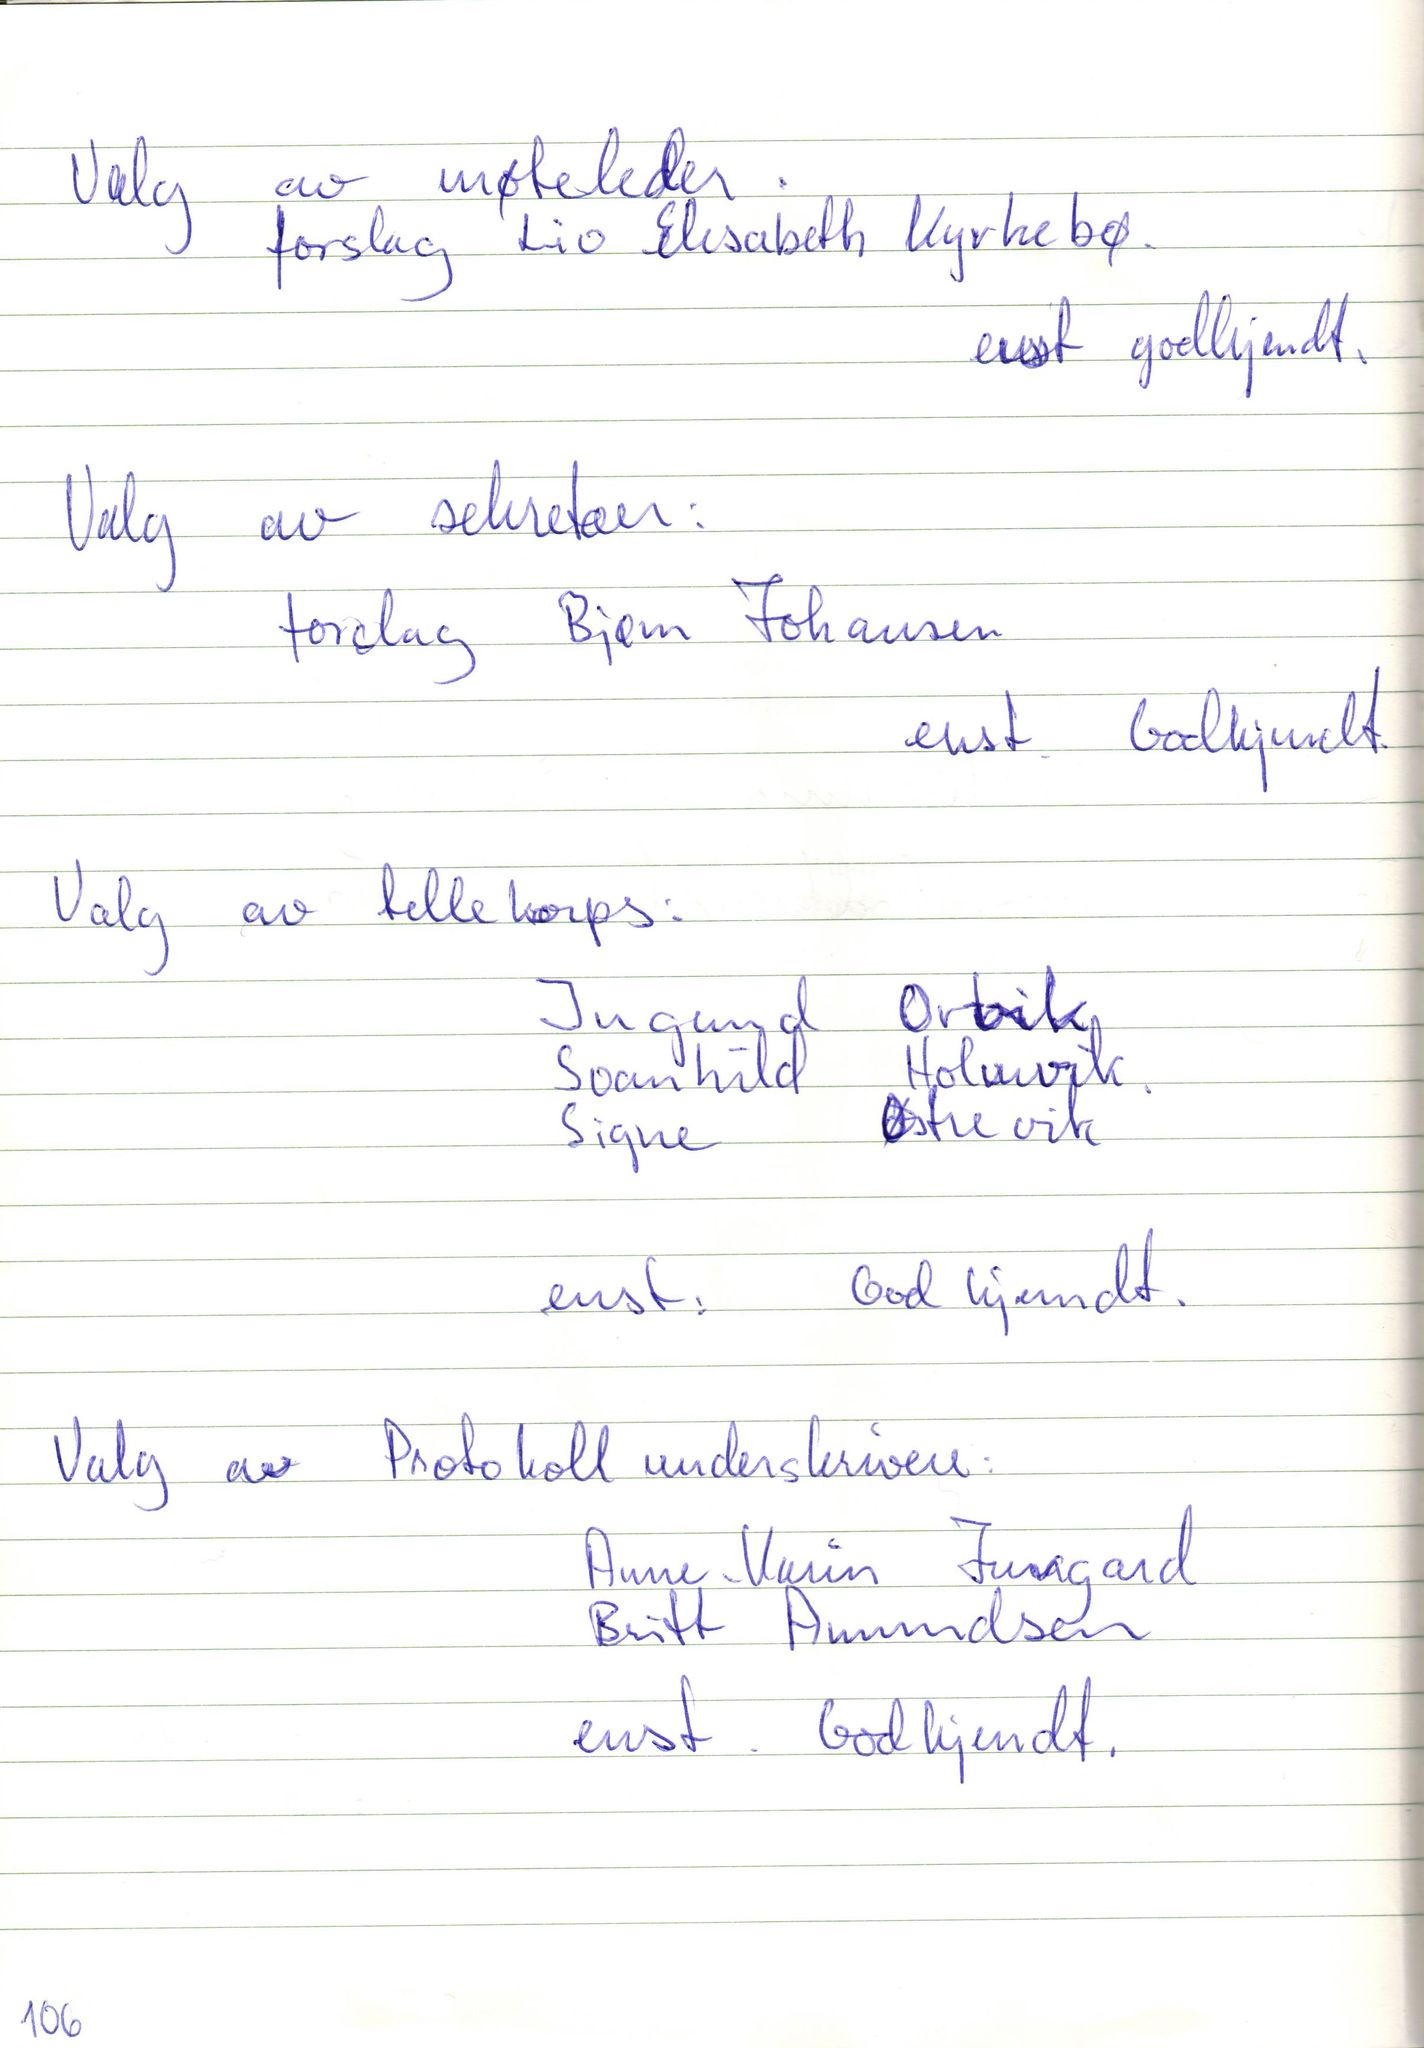 Valg av møteleder.
forslag Liv Elisabeth Kyrkebø.
enst godkjendt.
Valg av sekretær:
forslag Bjørn Johansen
enst. Godkjendt.
Valg av tellekorps:
Ingunn Orvik
Svanhild Holmvik.
Signe Østrevik
enst. Godkjendt.
Valg av Protokoll underskrivere:
Anne-Karin
Britt Amundsen
enst. Godkjendt.
106